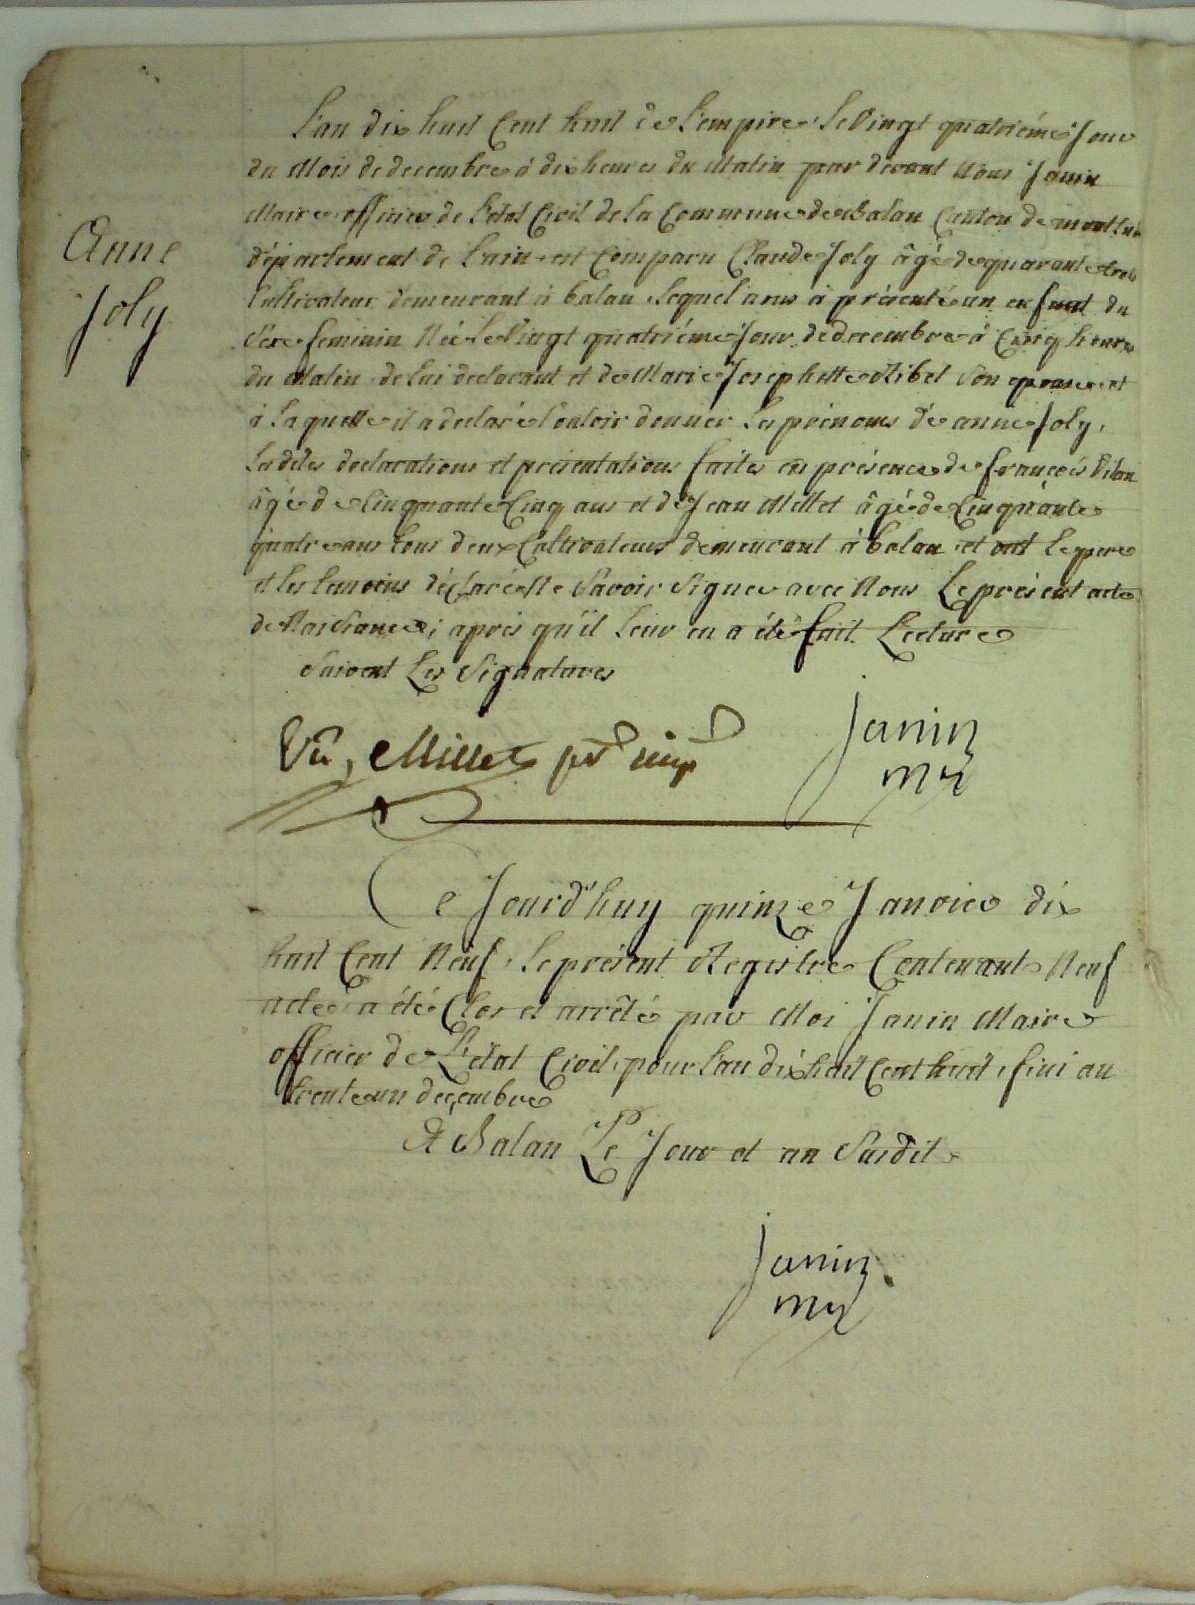 L'an dix huit Cent huit de L'empire, Le Vingt quatriéme Jour
du Mois de decembre à dix heures du Matin par devant Nous Janin
Maire officier de L'etat Civil de la Commune de Balan Canton de montluel
département de L'ain est Comparu Claude Joly âgé de quarante trois
Cultivateur demeurant à balan, Lequel à présenté un enfant du
Sexe feminin Née Le Vingt quatriéme Jour de decembre à Cinq heures
du Matin de Lui declarant et de Marie Josephette Ribet Son epouse et
à Laquelle il a declaré Vouloir donner Les prénoms de anne Joly,
Les dites declarations et présentations faites en présence de françois
âgé de Cinquante Cinq ans et de Jean Millet âgé de Cinquante
quatre ans tous deux Cultivateurs demeurant à balan et ont Le pere
et Les temoins déclaré Ne Savoir Signer avec Nous Le présent acte
de Naissance; après qu'il Leur en a été fait Lecture
Suivent Les Signatures
Anne
Joly
Vu, Millet
Janin
mre
Ce Jourd'huy quinze Janvier dix
huit Cent Neuf, Le présent Registre Contenant Neuf
actes a été Clos et arrêté par Moi Janin Maire
officier de L'etat Civil, pour L'an dix huit Cent huit, fini au
trente un decembre
A Balan Le Jour et an Susdit
Janin
mre